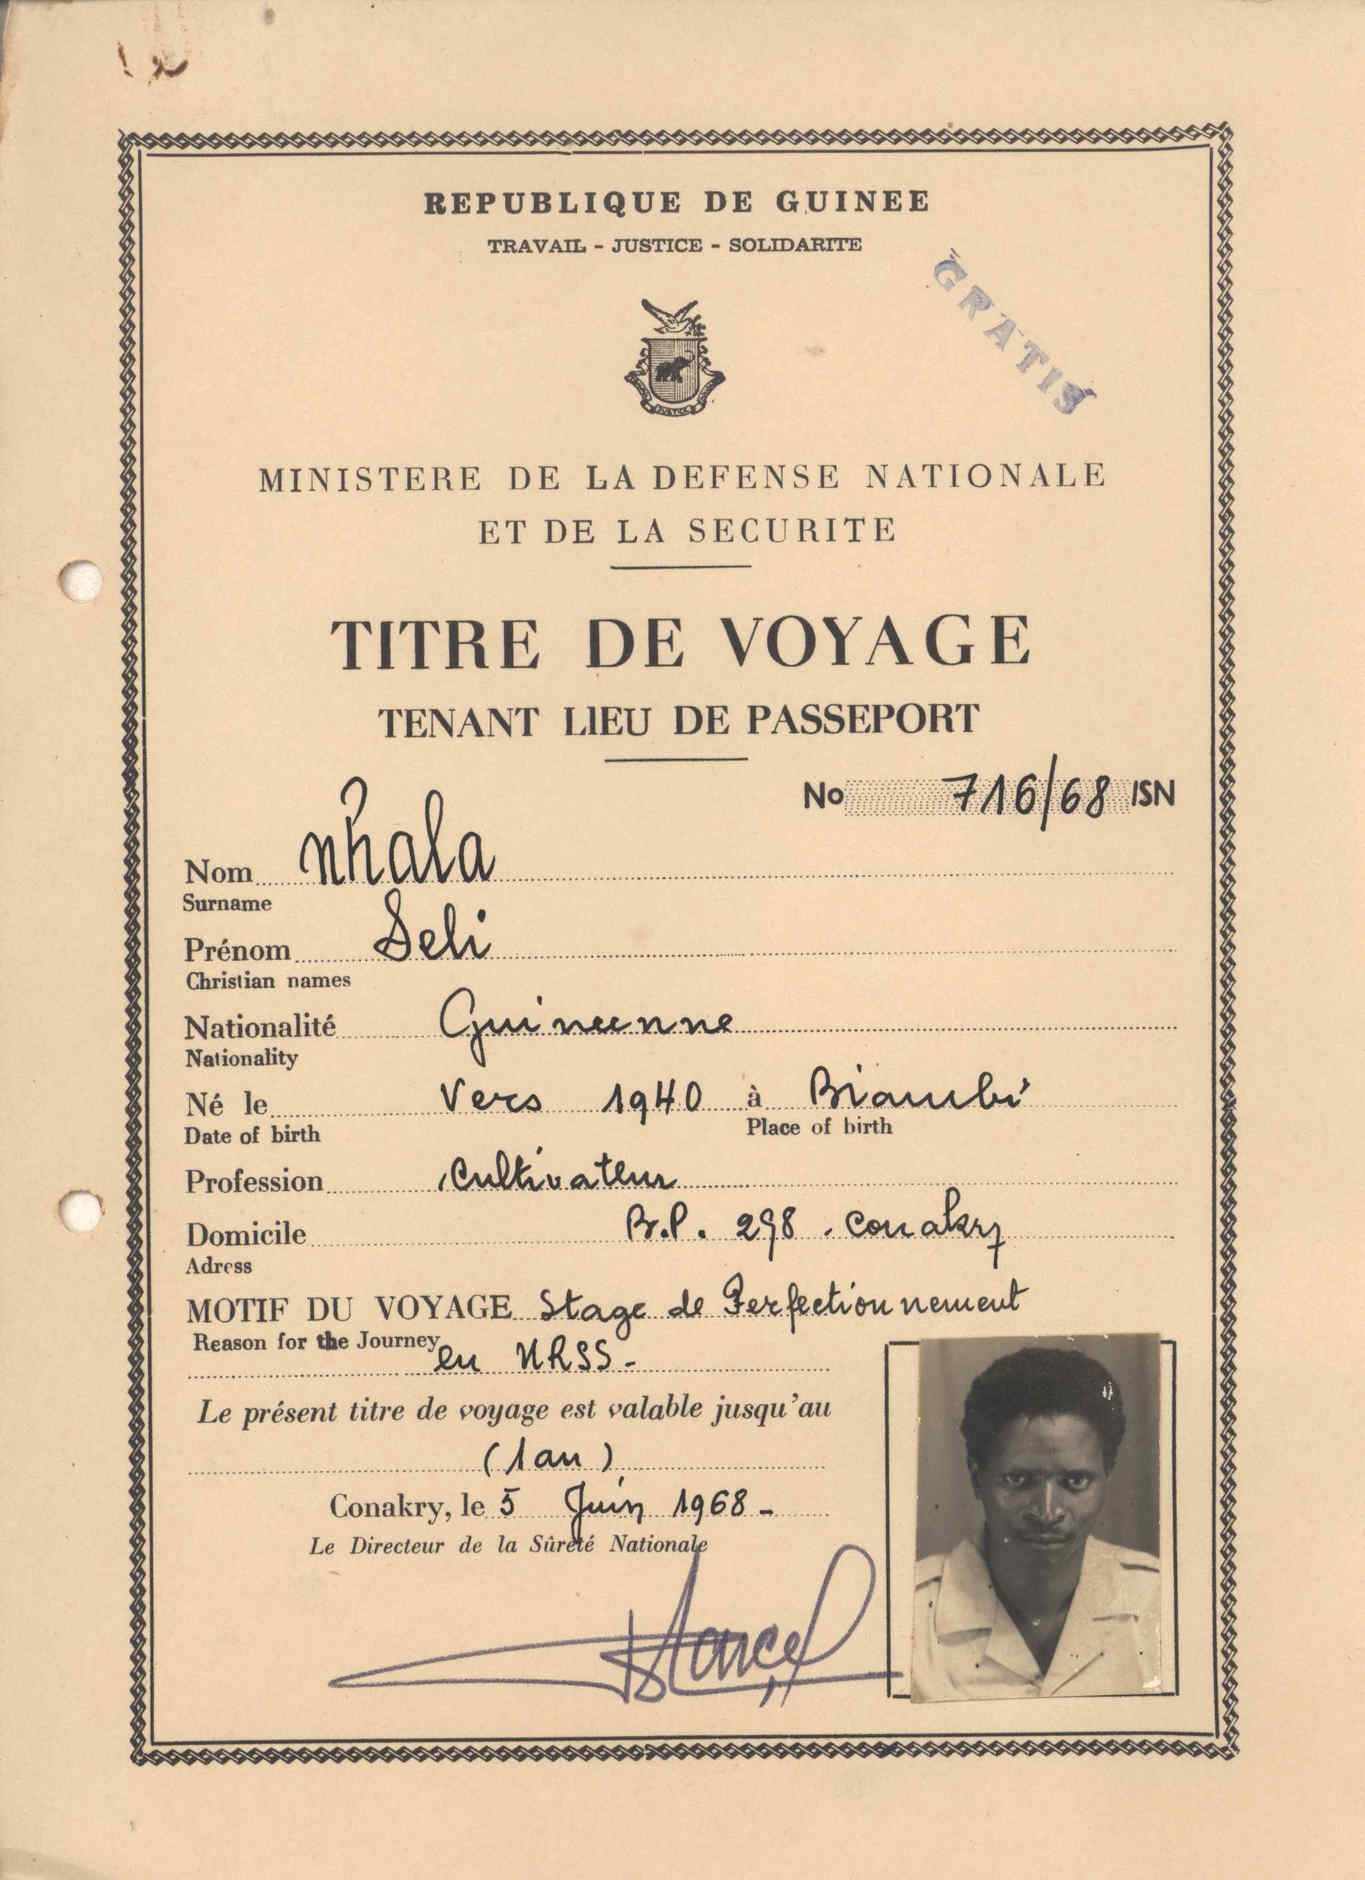 REPUBLIQUE DE GUINEE
TRAVAIL - JUSTICE - SOLIDARITE
GRATIS
JUSTICE
MINISTERE DE LA DEFENSE NATIONALE
ET DE LA SECURITE
TITRE DE VOYAGE
TENANT LIEU DE PASSEPORT
No 716/68 ISN
Nom Nhala
Surname
Prénom Seli
Christian names
Nationalité Guineenne
Nationality
Né le Vers 1940 à Biambi
Date of birth Place of birth
Profession Cultivateur
Domicile B.P. 298. Conakry
Adress
MOTIF DU VOYAGE Stage de Perfectionnement
Reason for the Journey
en URSS-
Le présent titre de voyage est valable jusqu'au
(1 an)
Conakry, le 5 Juin 1968-
Le Directeur de la Sûreté Nationale